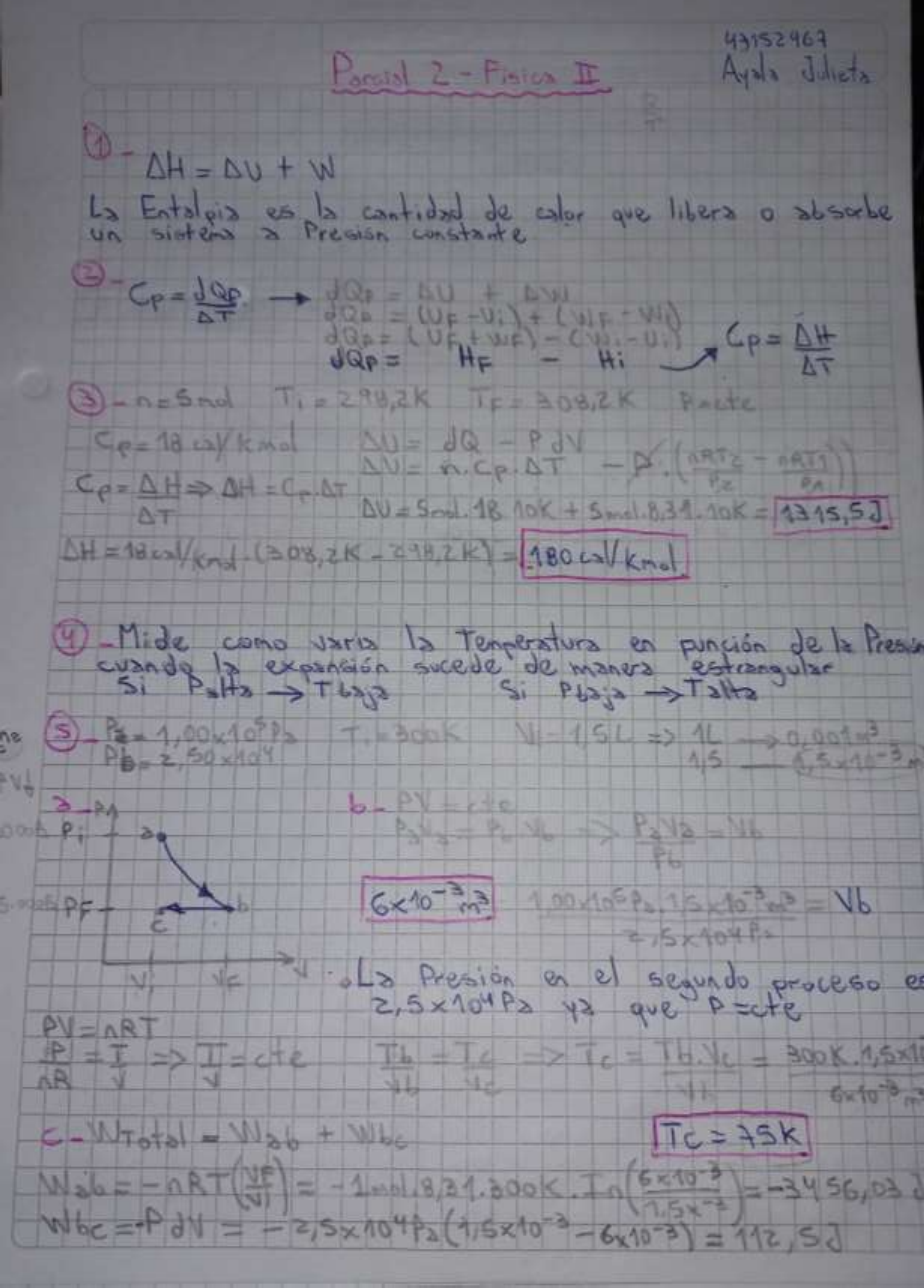 43152967
Ayala Julieta
Parcial 2 - Fisica II
① - ΔH = ΔU + W
La Entalpia es la cantidad de calor que libera o absorbe
un sistema a Presion constante
② - Cp = dQp / ΔT → dQp = ΔU + ΔW
dQp = (UF - Ui) + (WF - Wi)
dQp = (UF + WF) - (Wi - Ui)
dQp = HF - Hi → Cp = ΔH / ΔT
③ - n = 5mol Ti = 298,2K TF = 308,2K P=cte
Cp = 18 cal/Kmol ΔU = dQ - PdV
ΔU = n.Cp.ΔT - P.(nRT2/P2 - nRT1/P1))
Cp = ΔH/ΔT => ΔH = Cp.ΔT
ΔU = 5mol.18.10K + 5mol.8,31.10K = 1315,5J
ΔH = 18cal/Kmol.(308,2K - 298,2K) = 180cal/Kmol
④ - Mide como varia la Temperatura en punción de la Presión
cuando la expansión sucede de manera estrangular
Si Palta → Tbaja Si Pbaja → Talta
⑤ - Pa = 1,00x10⁵Pa T = 300K Vi = 1,5L => 1L → 0,001m³
Pb = 2,50x10⁴ 1,5 — 1,5x10⁻³m
a - P
Pi a
PF c b
Vi VF V
b - PV = cte
PaVa = Pb Vb => PaVa/Pb = Vb
6x10⁻³m³ 1,00x10⁵Pa.1,5x10⁻³m³ / 2,5x10⁴Pa = Vb
. La Presión en el segundo proceso es
2,5x10⁴Pa ya que P=cte
PV = nRT
P/nR = T/V => T/V = cte Tb/Vb = Tc/Vc => Tc = Tb.Vc/Vb = 300K.1,5x10 / 6x10⁻³m³
c - WTotal = Wab + Wbc Tc = 75K
Wab = -nRT(VF/Vi) = -1mol.8,31.300K.In(6x10⁻³/1,5x⁻³) = -3456,03
Wbc = -PdV = -2,5x10⁴Pa(1,5x10⁻³ - 6x10⁻³) = 112,5J